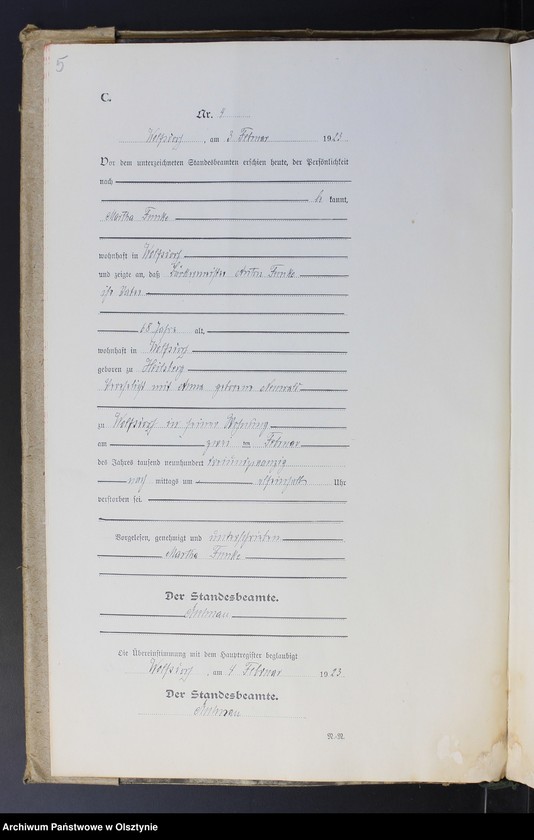 5
C.
Nr. 4
Wolfsdorf, am 3 Februar 1923
Vor dem unterzeichneten Standesbeamten erschien heute, der Persönlichkeit
nach
be kannt,
Martha Funke
wohnhaft in Wolfsdorf
und zeigte an, daß Anton Funke
ihr Vater
68 Jahre alt,
wohnhaft in Wolfsdorf
geboren zu Heilsberg
verehelicht mit Anna geborene
zu Wolfsdorf in seiner Wohnung
am zwei ten Februar
des Jahres tausend neunhundert dreiundzwanzig
nach mittags um Uhr
verstorben sei.
Vorgelesen, genehmigt und unterschrieben
Martha Funke
Der Standesbeamte.
Die Übereinstimmung mit dem Hauptregister beglaubigt
Wolfsdorf, am 4 Februar 1923.
Der Standesbeamte.
N.-N.
Archiwum Państwowe w Olsztynie